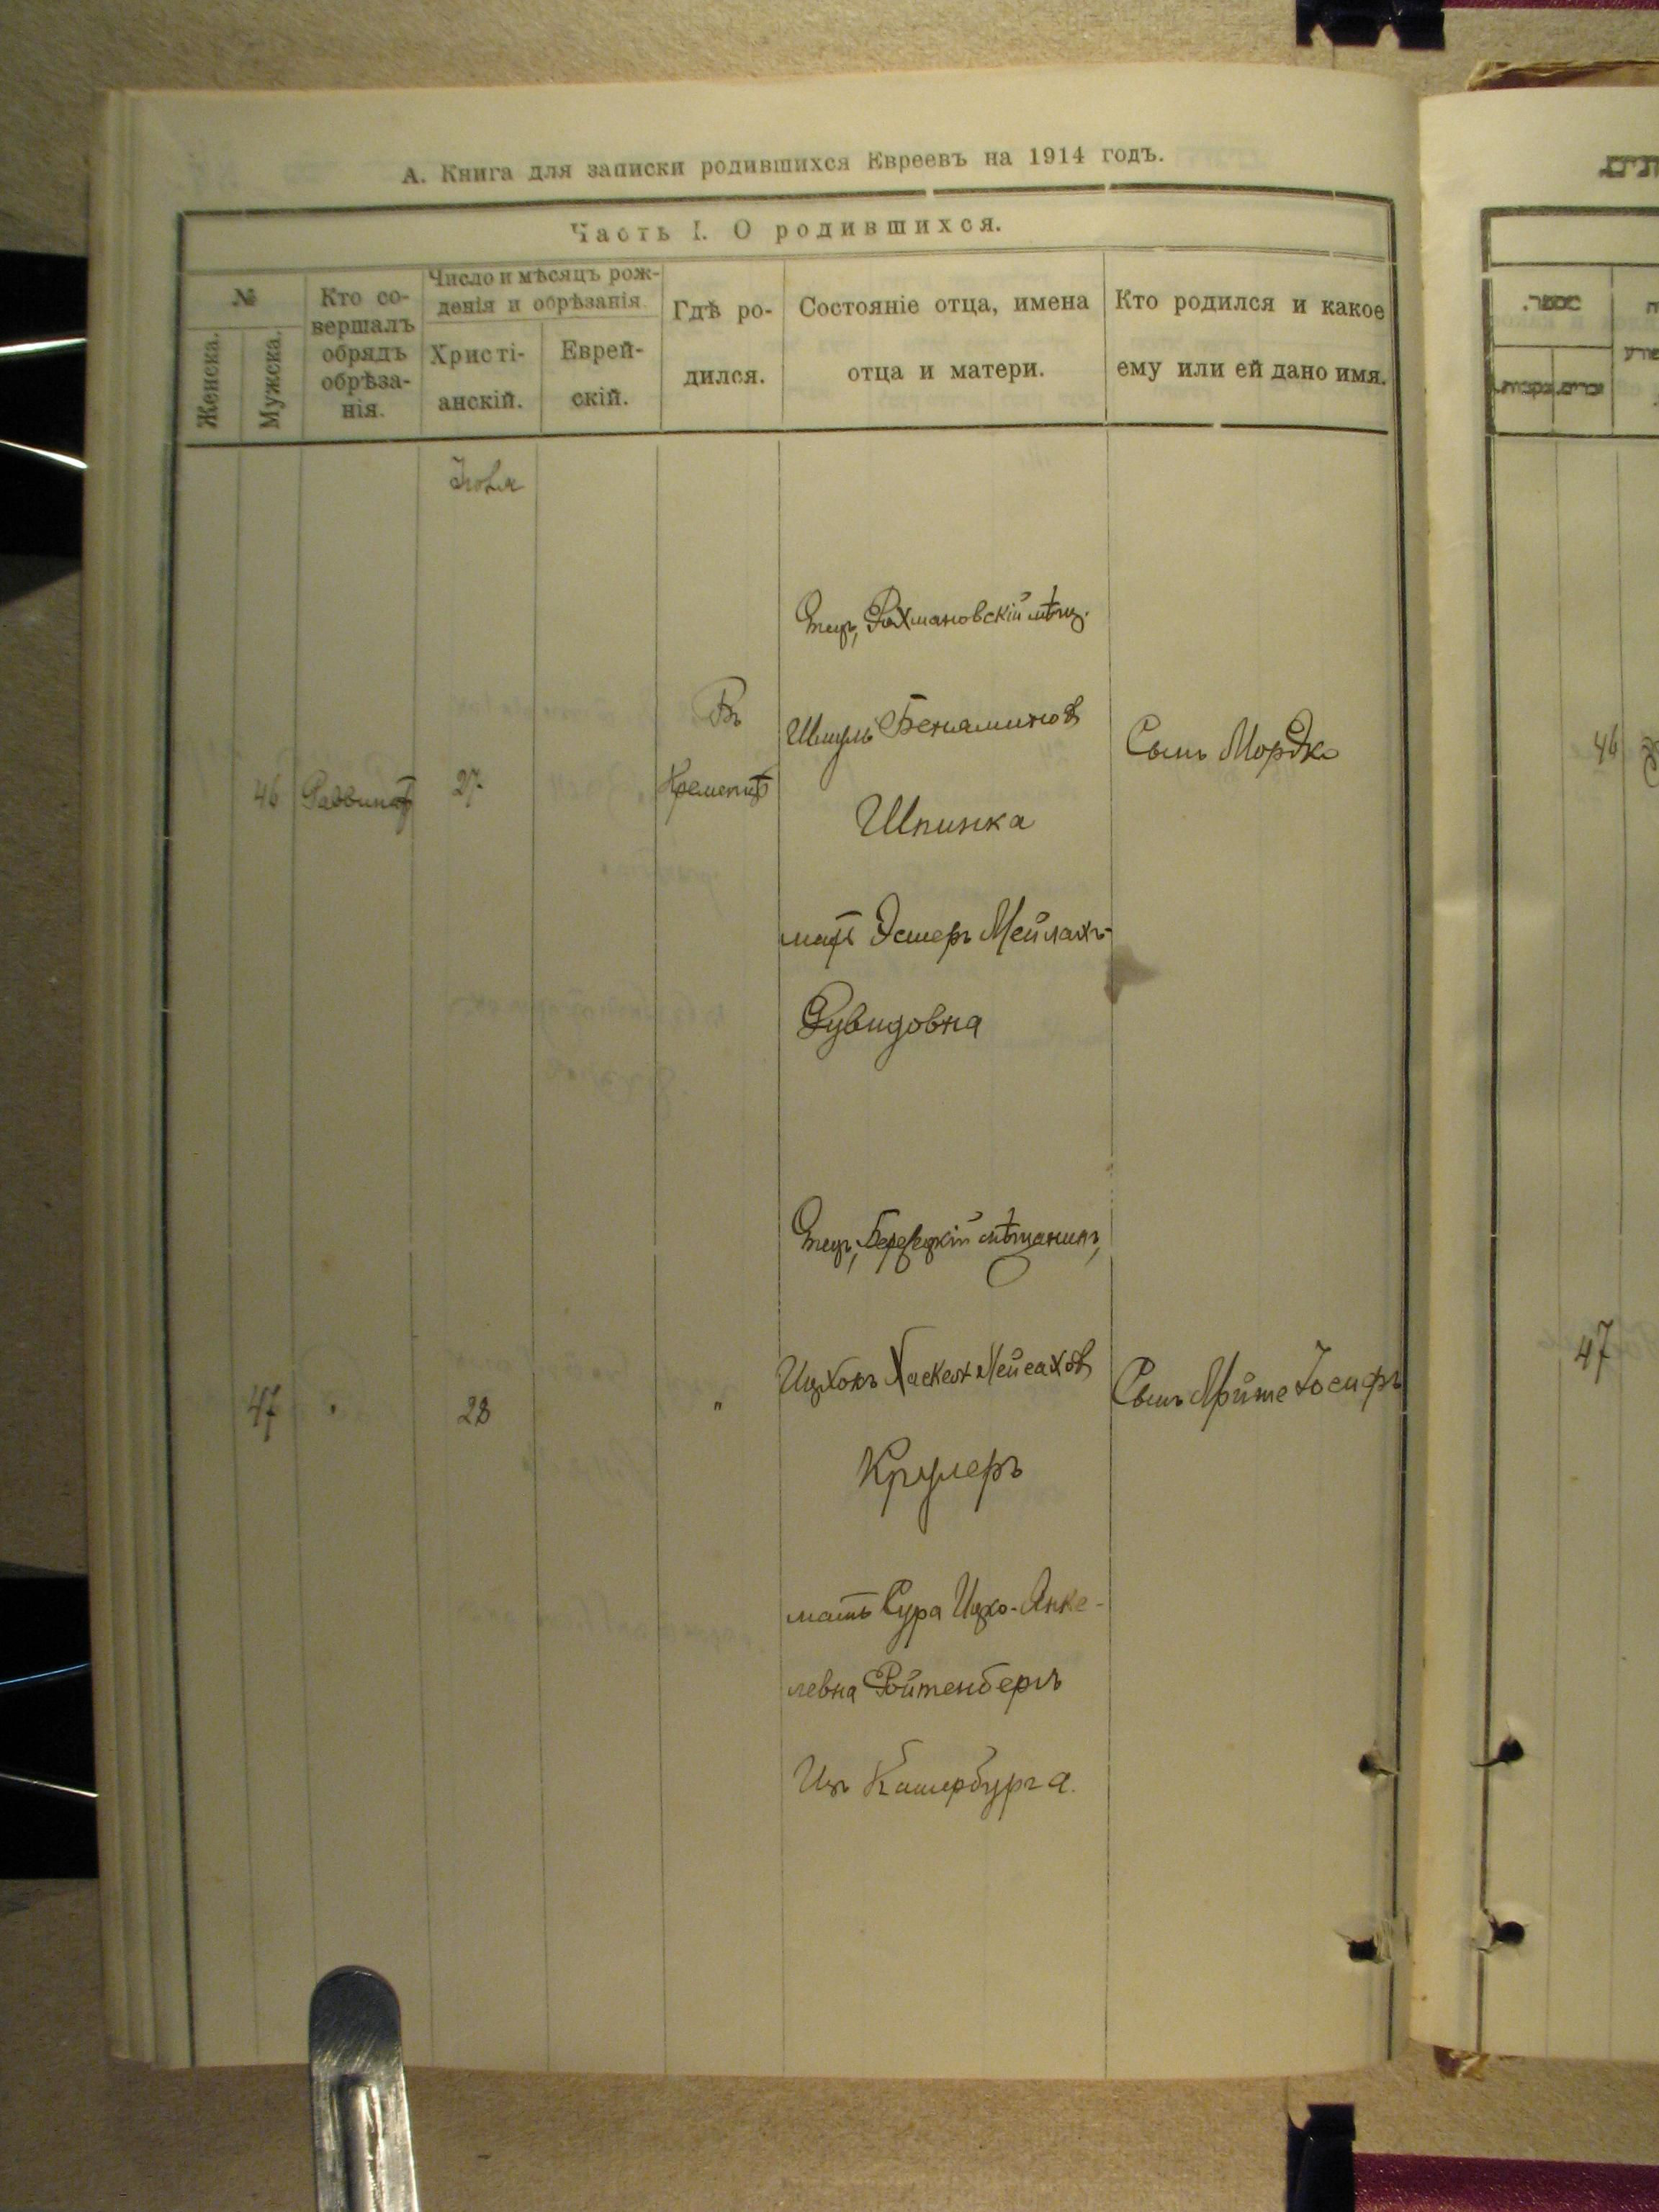 А. Книга для записки родившихся Евреевъ на 1914 годъ.
Часть I. О родившихся.
№
Женска.
Мужска.
Кто со-
вершалъ
обрядъ
обрѣза-
нія.
Число и мѣсяцъ рож-
денія и обрѣзанія.
Христі-
анскій.
Еврей-
скій.
Гдѣ ро-
дился.
Состояніе отца, имена
отца и матери.
Кто родился и какое
ему или ей дано имя.
46
27
Въ
Отецъ, Рахмановскій мѣщ.
Шмуль Беняминовъ
Шпинка
мать Эстеръ Мейлахъ-
Дувидовна
Сынъ Мордко
47
"
28
"
Отецъ, Березецкій мѣщанинъ,
Ицхокъ Хаскель Пейсаховъ
мать Сура Ицко-Анке-
левна Ройтенбергъ
Изъ Катербурга.
Сынъ Іосифъ
46
47